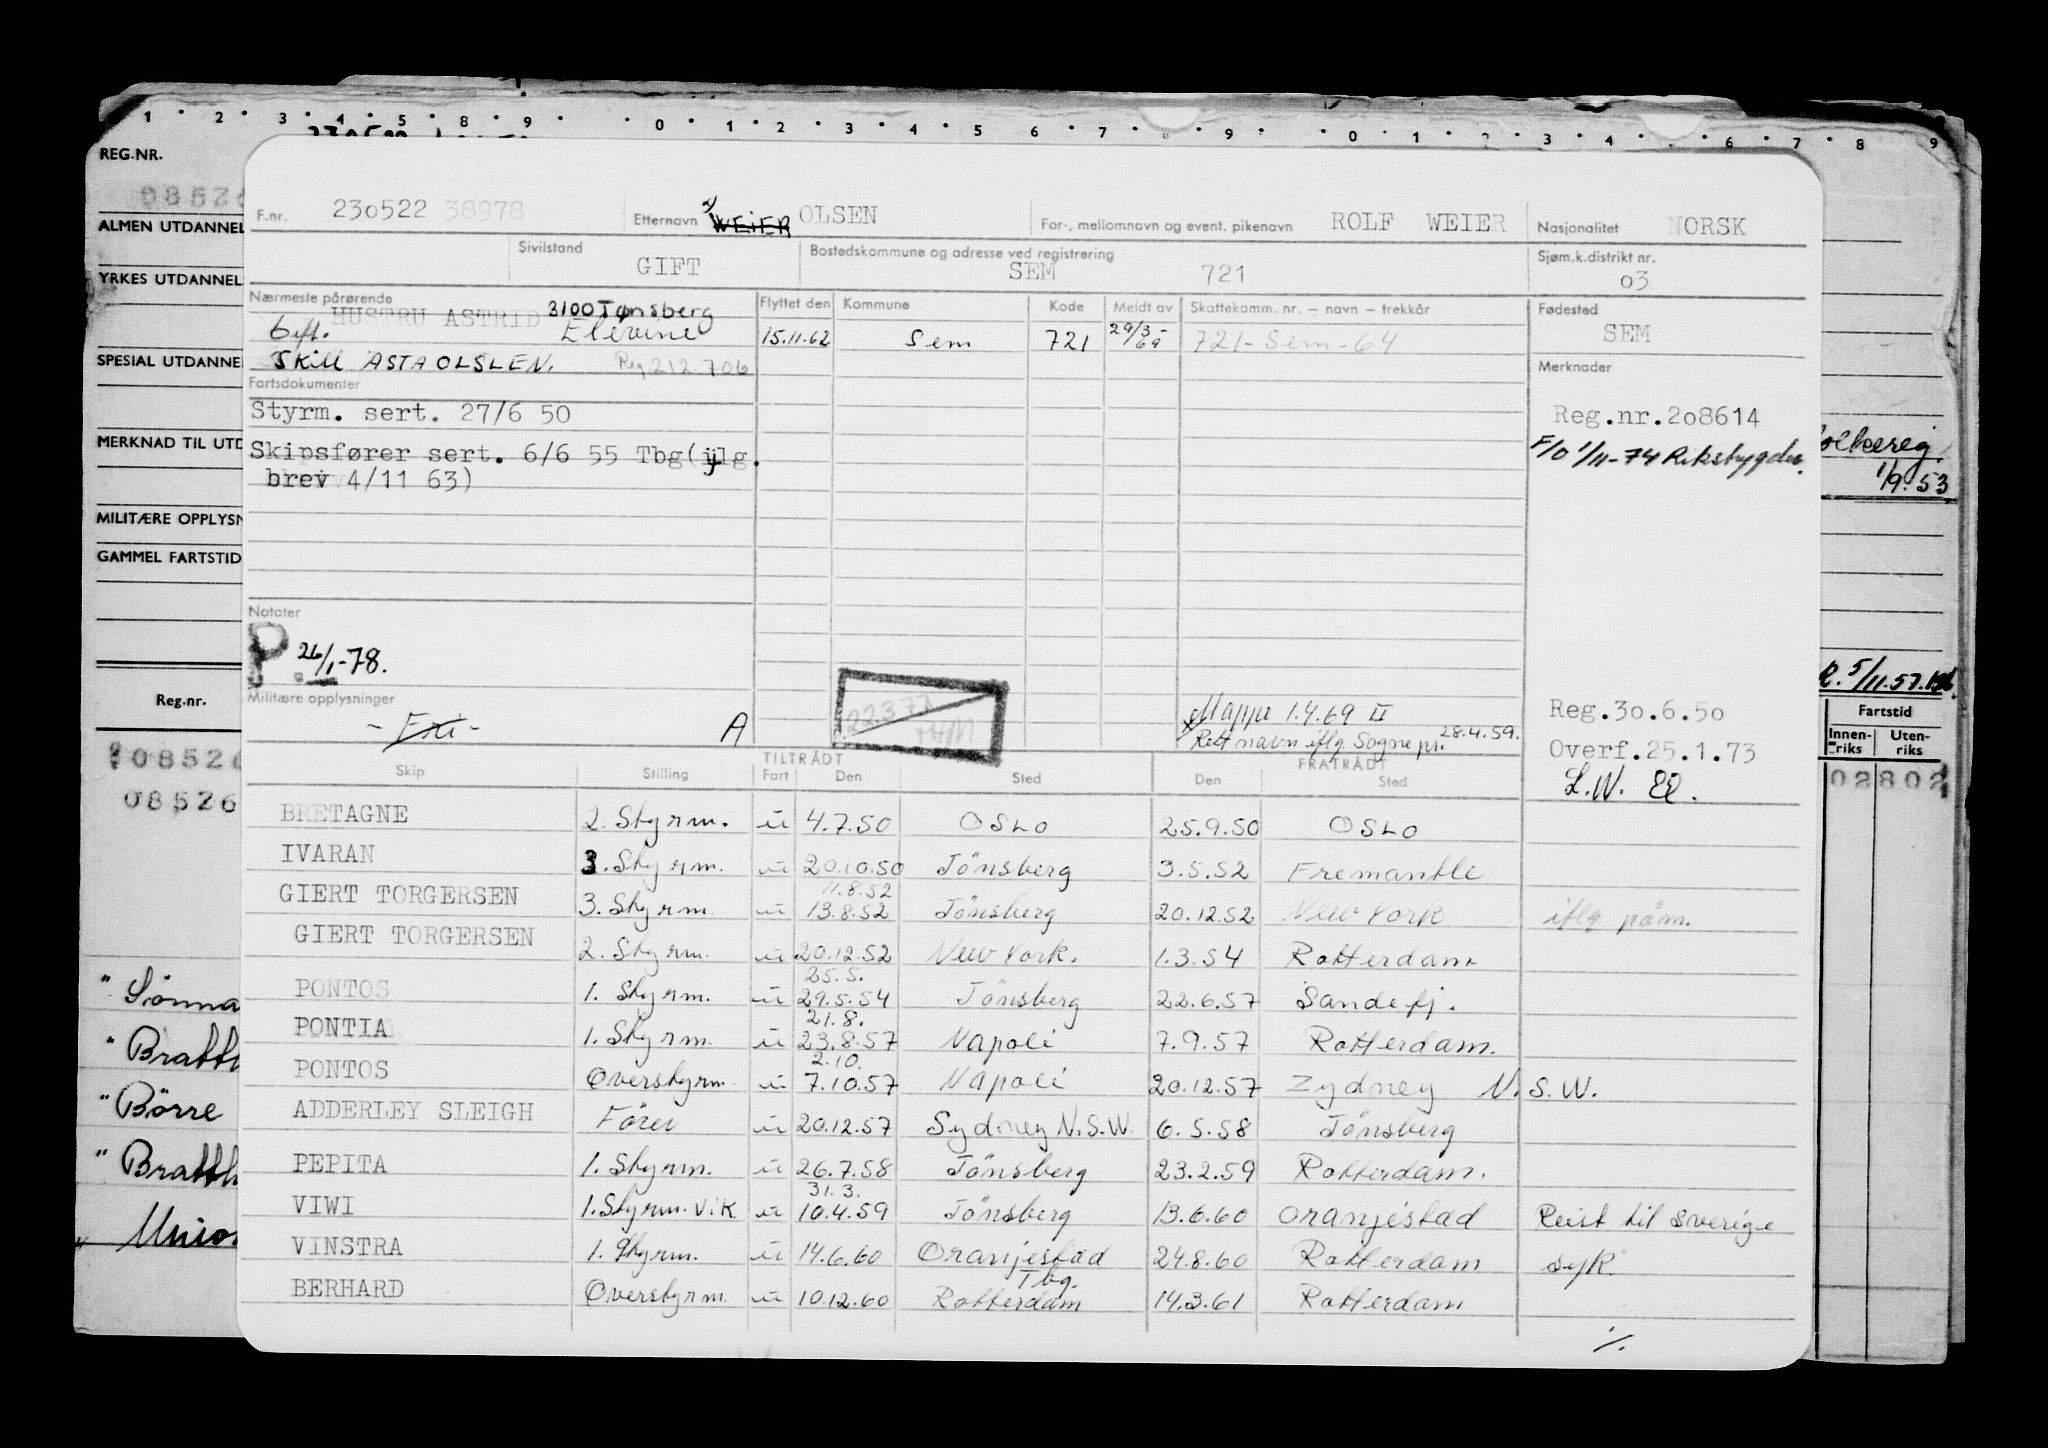 1 2 3 4 5 8 9 0 1 2 3 4 5 6 7 8 9 0 1 2 3 4 6 7 8 9
REG.NR.
F.nr. 230522 38978 Etternavn WEIER OLSEN For-, mellomnavn og event. pikenavn ROLF WEIER Nasjonalitet NORSK
ALMEN UTDANNEL
Sivilstand GIFT Bostedskommune og adresse ved registrering SEM 721 Sjøm.k.distrikt nr. 03
YRKES UTDANNEL
Nærmeste pårørende Flyttet den Kommune Kode Meldt av Skattekomm. nr. – navn – trekkår Fødested
HUSTRU ASTRID 3100 Tønsberg SEM
Gift. 15.11.62 Sem 721 29/3-69 721-Sem-64
SPESIAL UTDANNE
Skill ASTA OLSLEN. Reg 212.706 Merknader
Fartsdokumenter
Styrm. sert. 27/6 50 Reg.nr.208614
MERKNAD TIL UTD
Skipsfører sert. 6/6 55 Tbg(iflg. F/O 1/11-74 Riksbygder.
brev 4/11 63) 1/9.53
MILITÆRE OPPLYSN
GAMMEL FARTSTID
Notater
P. 26/1-78.
R. 5/11.57.
Reg.nr.
Militære opplysninger
-Fri- A
Mappe 1.4.69 II
Rett navn iflg Sogne pr. 28.4.59.
Reg.30.6.50
Overf.25.1.73
L.W. El.
Fartstid
Innen-riks Uten-riks
02802
08526
08526
TILTRÅDT FRATRÅDT
Skip Stilling Fart Den Sted Den Sted
BRETAGNE 2. Styrm. u 4.7.50 OSLO 25.9.50 OSLO
IVARAN 3. Styrm. u 20.10.50 Tönsberg 3.5.52 Fremantle
11.8.52
GIERT TORGERSEN 3. Styrm. u 13.8.52 Tönsberg 20.12.52 New York iflg påm.
GIERT TORGERSEN 2. Styrm. u 20.12.52 New York. 1.3.54 Rotterdam
25.5.
PONTOS 1. Styrm. u 29.5.54 Tönsberg 22.6.57 Sandefj.
21.8.
PONTIA 1. Styrm. u 23.8.57 Napoli 7.9.57 Rotterdam.
2.10.
PONTOS Overstyrm. u 7.10.57 Napoli 20.12.57 Zydney N.S.W.
ADDERLEY SLEIGH Förer u 20.12.57 Sydney N.S.W. 6.5.58 Tönsberg
PEPITA 1. Styrm. u 26.7.58 Tönsberg 23.2.59 Rotterdam.
31.3.
VIWI 1. Styrm. vik u 10.4.59 Tönsberg 13.6.60 Oranjestad Reist til Sverige
VINSTRA 1. Styrm. u 14.6.60 Oranjestad 24.8.60 Rotterdam syk.
Tbg.
BERHARD Overstyrm. u 10.12.60 Rotterdam 14.3.61 Rotterdam
./.
" Börre